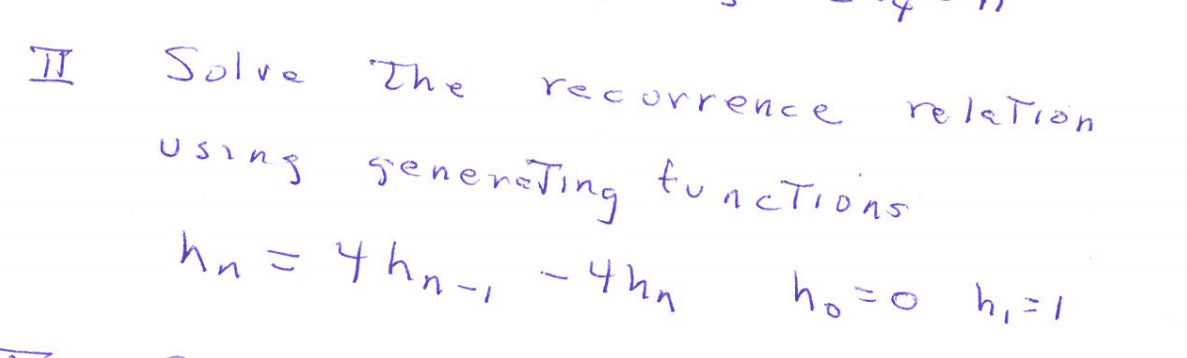 II Solve The recurrence relation
using generating functions
hn = 4hn-1 - 4hn h0=0 h1=1